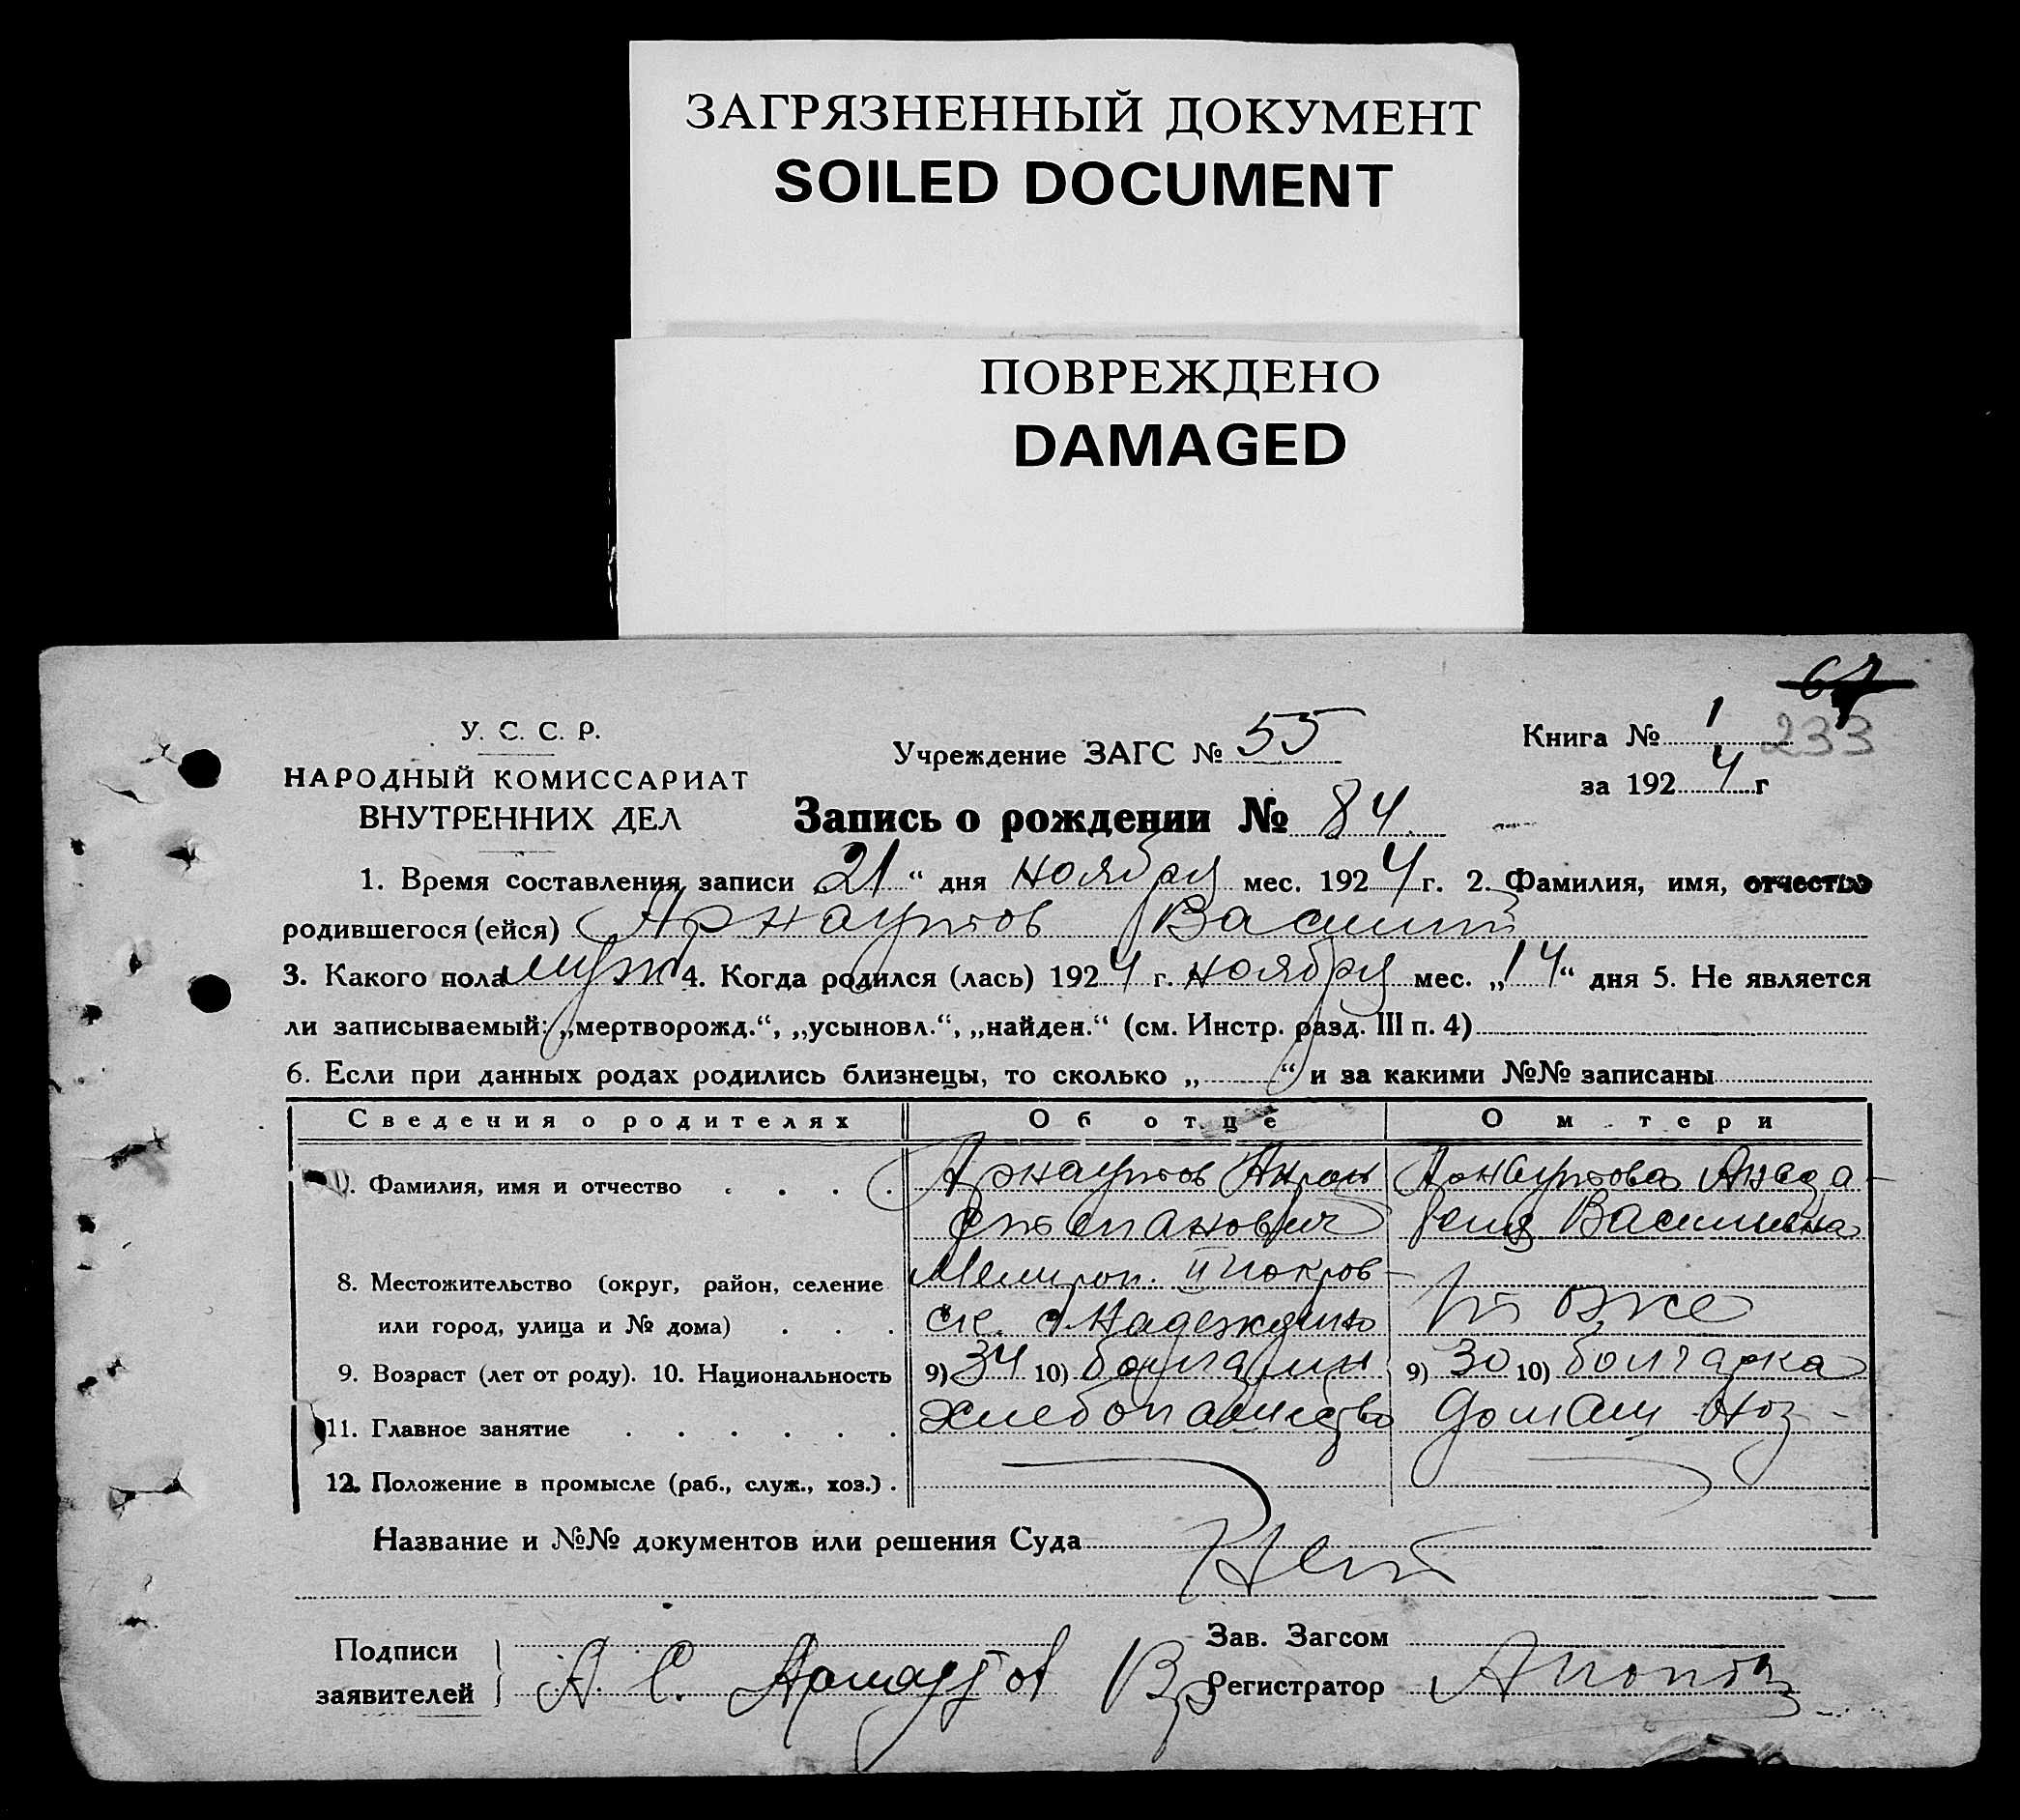 ЗАГРЯЗНЕННЫЙ ДОКУМЕНТ
SOILED DOCUMENT
ПОВРЕЖДЕНО
DAMAGED
У. С. С. Р.
НАРОДНЫЙ КОМИССАРИАТ
ВНУТРЕННИХ ДЕЛ
Учреждение ЗАГС № 55
Книга № 1
233
за 1924 г
Запись о рождении № 84
1. Время составления записи 21 " дня ноября мес. 1924 г. 2. Фамилия, имя, отчество
родившегося (ейся) Арнаутов Василий
3. Какого пола муж 4. Когда родился (лась) 1924 г. ноября мес. „14" дня 5. Не является
ли записываемый: „мертворожд.", „усыновл.", „найден." (см. Инстр. разд. III п. 4)
6. Если при данных родах родились близнецы, то сколько „ " и за какими №№ записаны
Сведения о родителях Об отце О м тери
Фамилия, имя и отчество Арнаутов Арнаутова
Степанович Василиевна
8. Местожительство (округ, район, селение Мелитоп. II Покров-
или город, улица и № дома) ск. с Надеждино то же
9. Возраст (лет от роду). 10. Национальность 9) 34 10) болгарин 9) 30 10) болгарка
11. Главное занятие хлебопашество домаш хоз-
12. Положение в промысле (раб., служ., хоз.)
Название и №№ документов или решения Суда Нет
Подписи заявителей А. С. Арнаутов
Зав. Загсом
Вр Регистратор